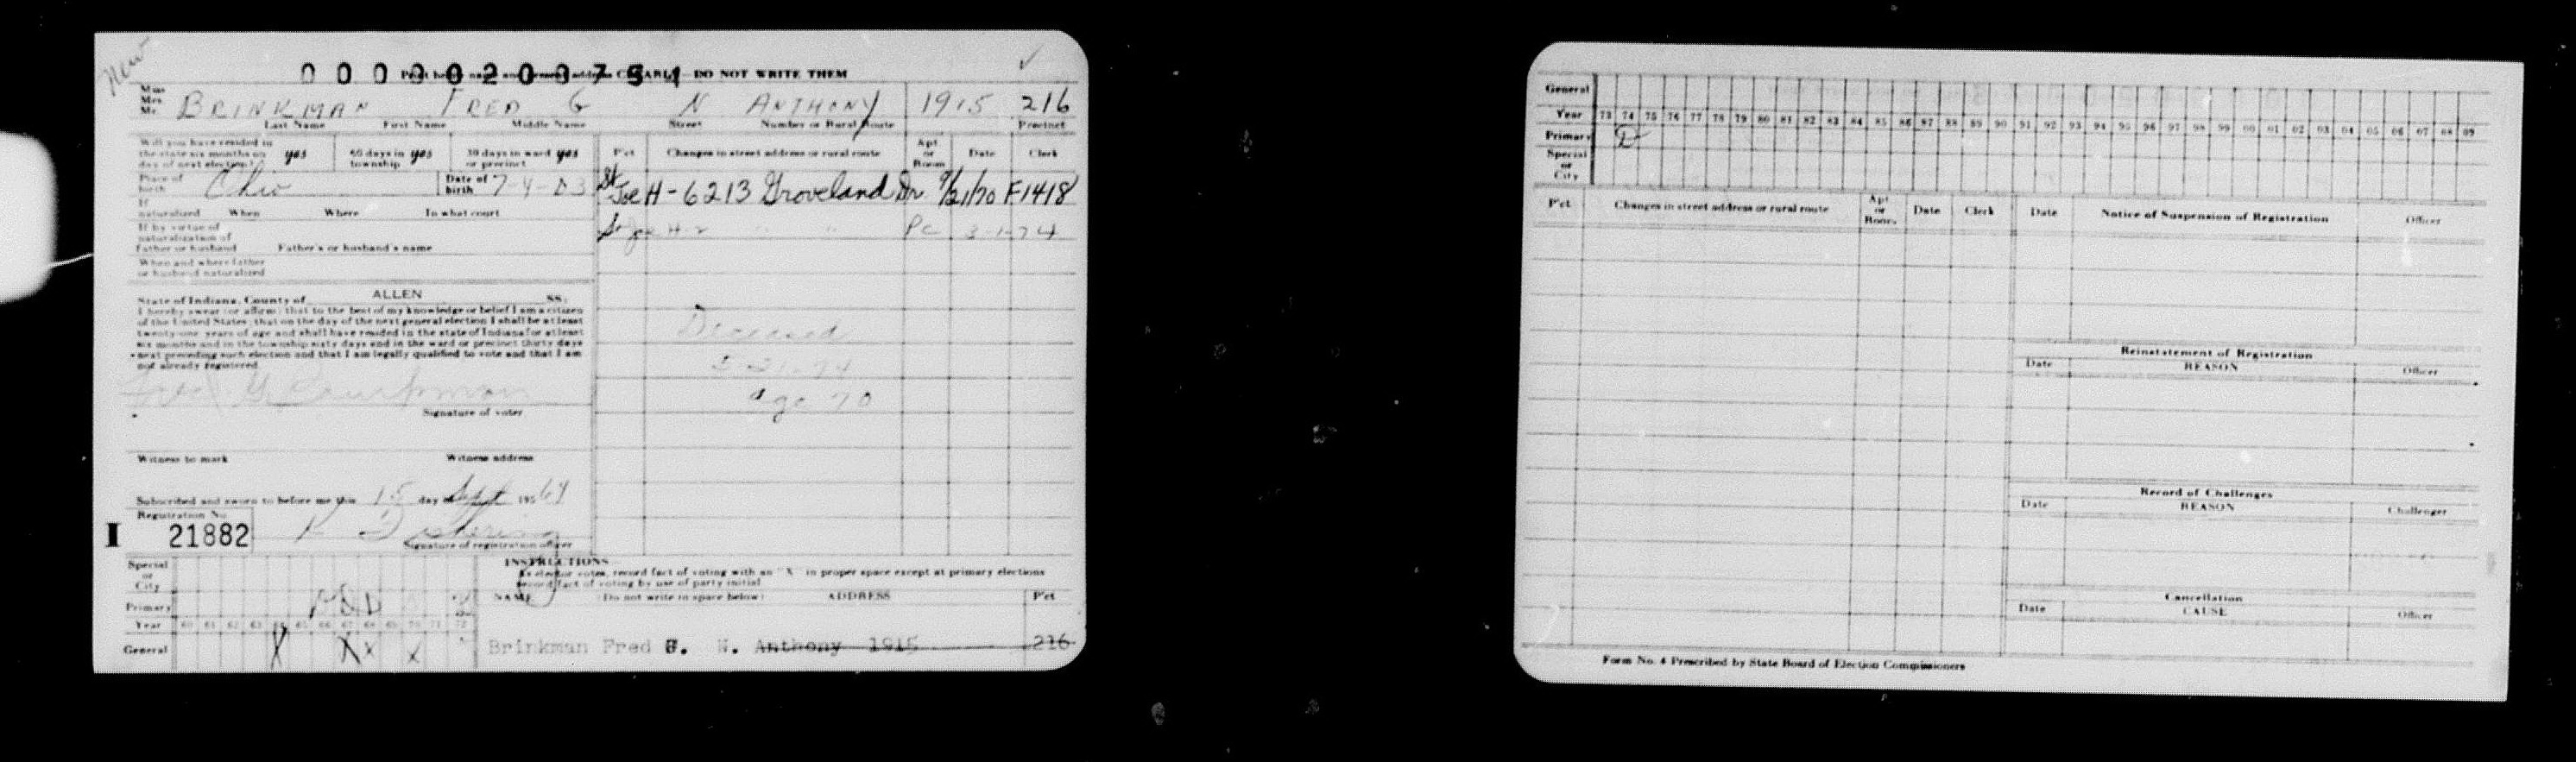 New
00000200751
Print here name and present address CLEARLY - DO NOT WRITE THEM
Miss
Mrs.
Mr.
BRINKMAN FRED G N ANTHONY 1915 216
Last Name First Name Middle Name Street Number or Rural Route Precinct
Will you have resided in
the state six months on
day of next election? yes 60 days in
township yes 30 days in ward
or precinct yes
Place of
birth Ohio Date of
birth 7-4-03
If
naturalized When Where In what court
If by virtue of
naturalization of
father or husband Father's or husband's name
When and where father
or husband naturalized
State of Indiana, County of ALLEN SS:
I hereby swear (or affirm) that to the best of my knowledge or belief I am a citizen
of the United States; that on the day of the next general election I shall be at least
twenty-one years of age and shall have resided in the state of Indiana for at least
six months and in the township sixty days and in the ward or precinct thirty days
next preceding such election and that I am legally qualified to vote and that I am
not already registered.
Fred G Brinkman
Signature of voter
Witness to mark Witness address
Subscribed and sworn to before me this 15 day of Sept 195 64
Registration No.
I 21882
Signature of registration officer
P'ct Changes in street address or rural route Apt
or
Room Date Clerk
St
Joe H - 6213 Groveland Dr 9/21/70 F1418
St Joe H-2 " " PC 3-1-74
Deceased
5-21-74
age 70
Special
or
City
Primary
Year 60 61 62 63 64 65 66 67 68 69 70 71 72
General X X X X
INSTRUCTIONS
As elector votes, record fact of voting with an "X" in proper space except at primary elections
record fact of voting by use of party initial
NAME (Do not write in space below) ADDRESS P'ct
Brinkman Fred G. N. Anthony 1915 216
General
Year 73 74 75 76 77 78 79 80 81 82 83 84 85 86 87 88 89 90 91 92 93 94 95 96 97 98 99 00 01 02 03 04 05 06 07 08 09
Primary D
Special
or
City
P'ct Changes in street address or rural route Apt
or
Room Date Clerk Date Notice of Suspension of Registration Officer
Reinstatement of Registration
Date REASON Officer
Record of Challenges
Date REASON Challenger
Cancellation
Date CAUSE Officer
Form No. 4 Prescribed by State Board of Election Commissioners